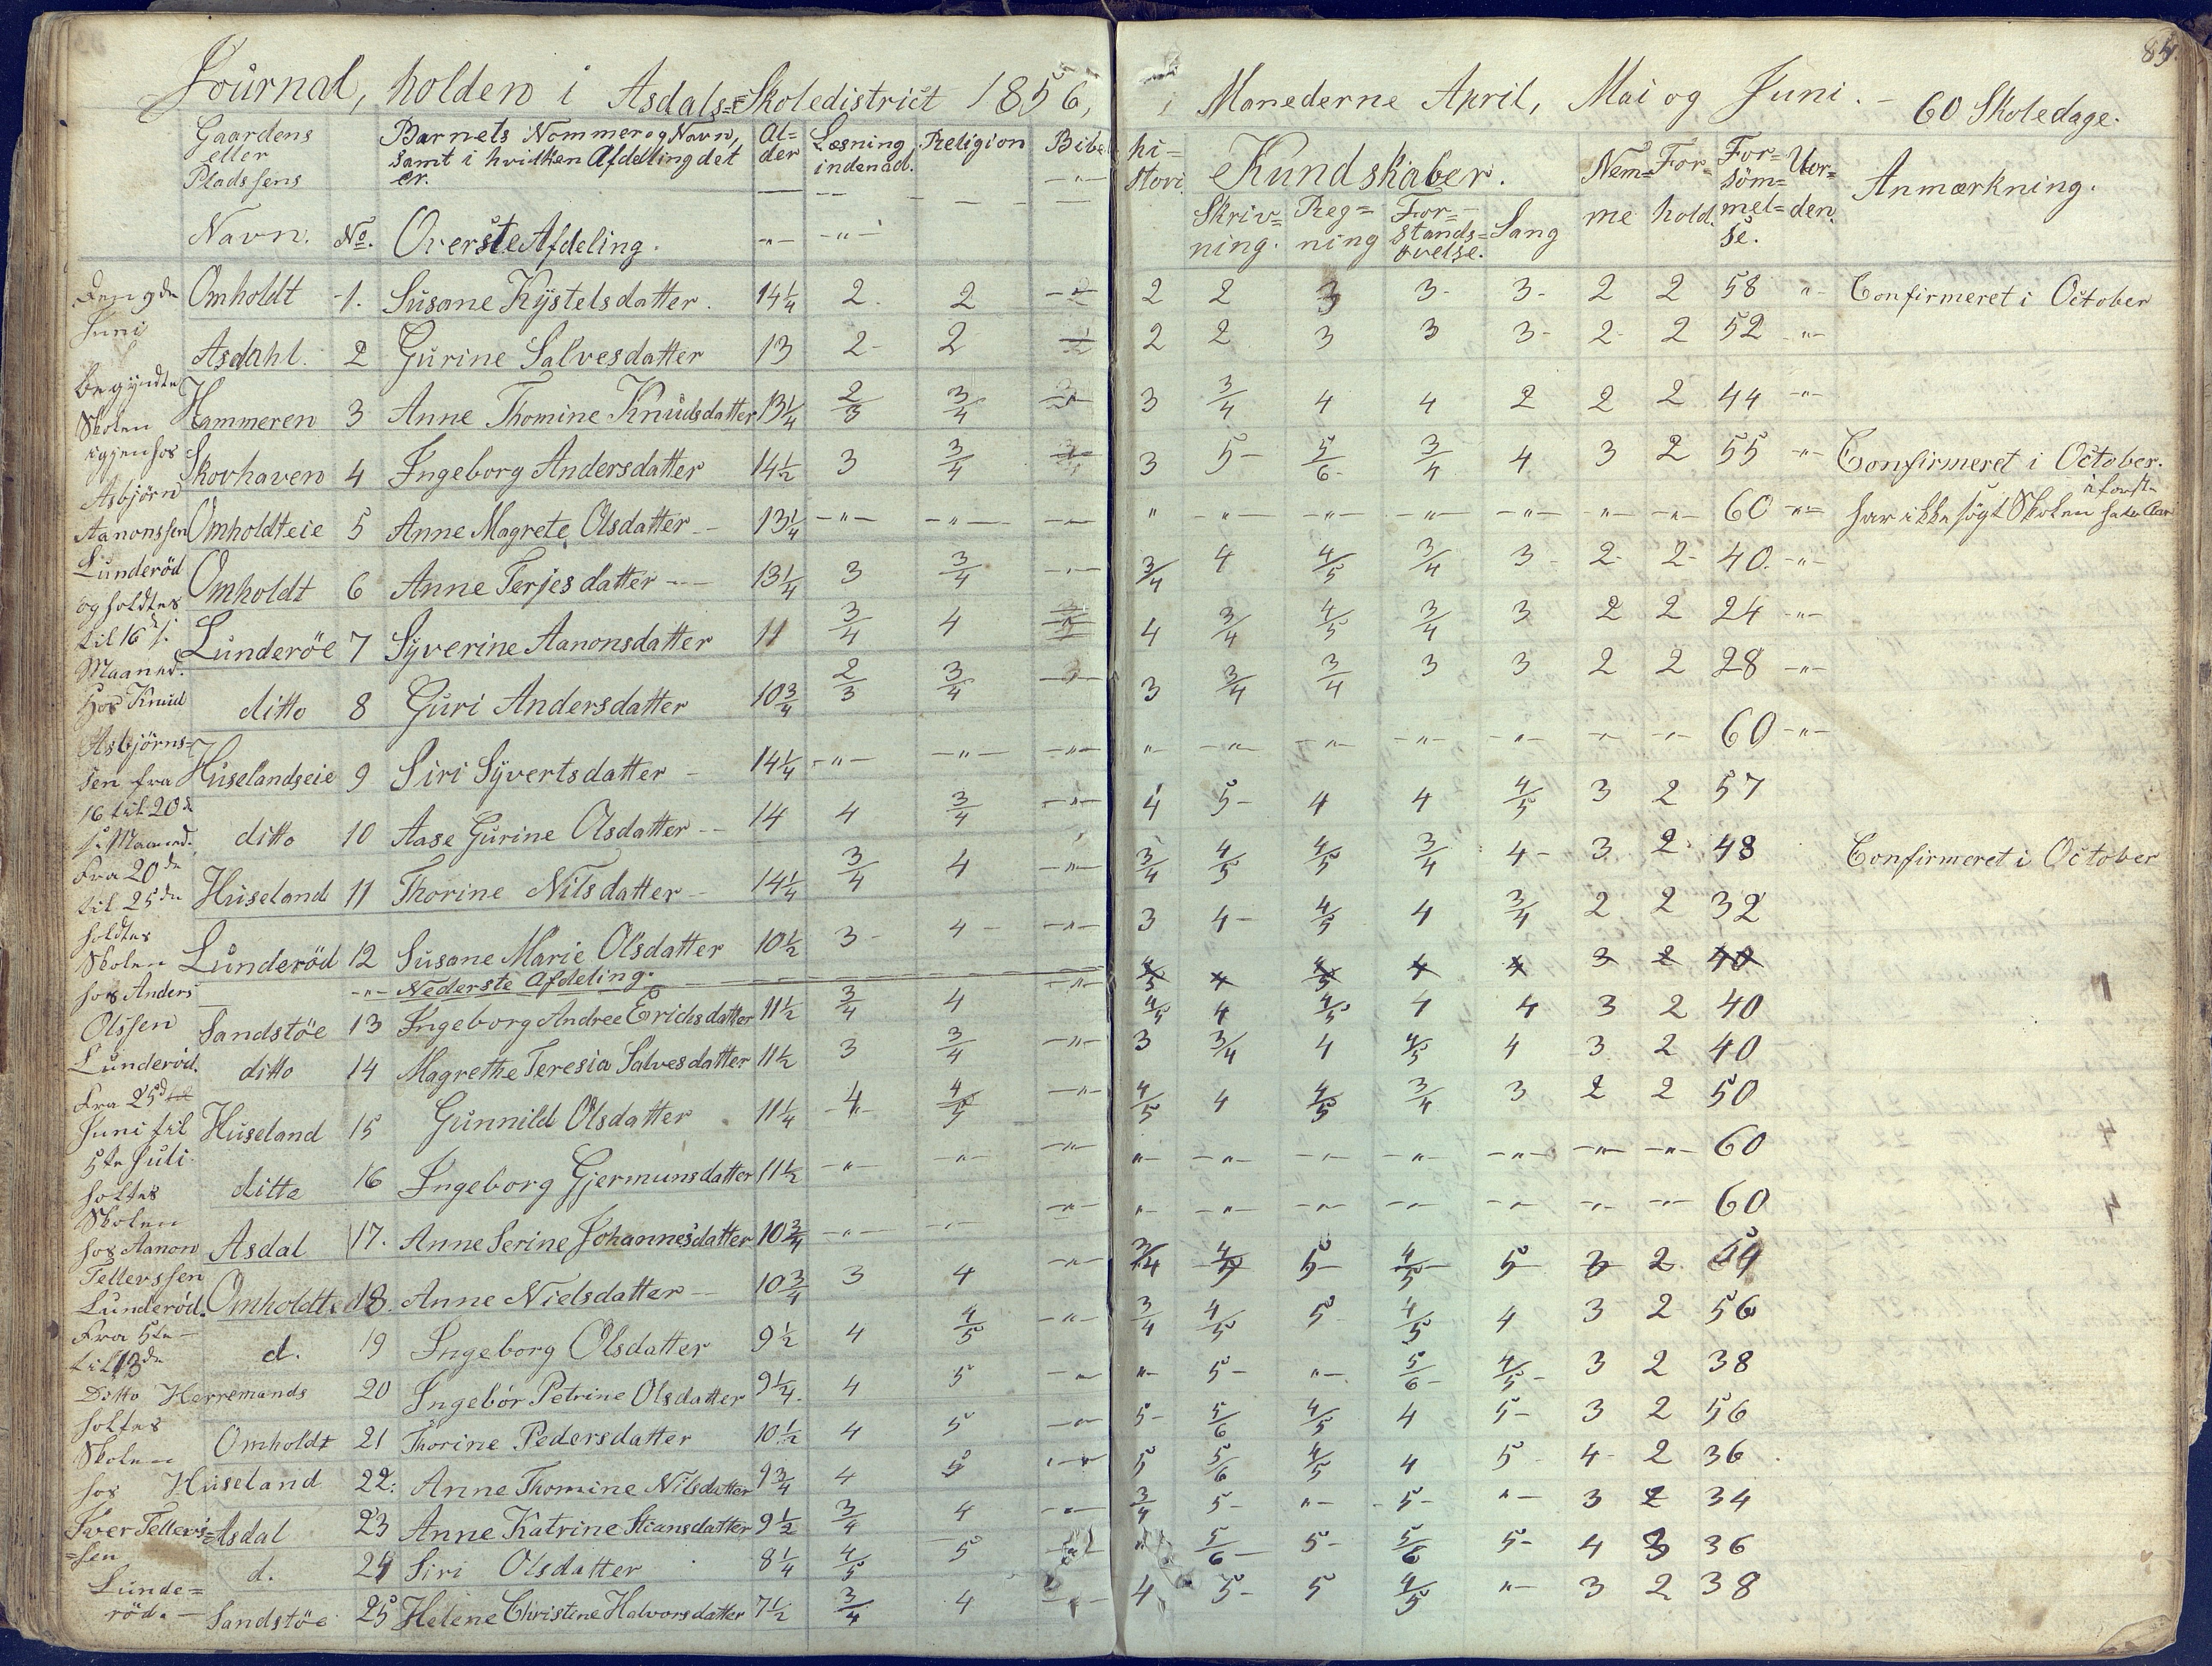 Journal, holden i Asdals=Skoledistrict 1856, i Manederne April, Mai og Juni. - 60 Skoledage.
85.
Gaardens eller Pladssens Navn. No. Barnets Nommer og Navn, samt i hvilken Afdeling det er. Al=der Læsning indenad. Religion Bibelhi=stori. Kundskaber. Nem=me For=hold. For=söm=mel=se. Uor=den. Anmærkning.
Overste Afdeling. Skriv=ning. Reg=ning For=stands=övelse. Sang
Omholdt 1. Susane Kystelsdatter. 14 1/4 2. 2 2 2 3 3- 3- 2 2 58 -"- Confirmeret i October
Asdahl. 2 Gurine Salvesdatter 13 2- 2 2 2 3 3 3- 2- 2 52 -"-
Hammeren 3 Anne Thomine Knudsdatter 13 1/4 2/3 3/4 3 3/4 4 4 2 2 2 44 -"-
Skovhaven 4 Ingeborg Andersdatter 14 1/2 3 3/4 3 5- 5/6- 3/4 4 3 2 55 -"- Confirmeret i October.
Omholdteie 5 Anne Magrete Olsdatter - 13 1/4 -"- -"- -"- " -"- -"- -"- -"- -"- -"- 60 -"- har ikke sögt Skolen
Omholdt 6 Anne Terjesdatter - 13 1/4 3 3/4 -"- 3/4 4 4/5 3/4 3- 2- 2- 40. -"-
Lunderöe 7 Syverine Aanonsdatter 11 3/4 4 4 3/4 4/5 3/4 3 2 2 24 -"-
ditto 8 Guri Andersdatter 10 3/4 2/3 3/4 3 3/4 3/4 3 3 2 2 28 -"-
Huselandseie 9 Siri Syvertsdatter - 14 1/4 -"- -"- -"- "- -"- -"- -"- -"- -"- -"- 60 -"-
ditto 10 Aase Gurine Olsdatter - 14 4 3/4 -"- 4 5- 4 4 4/5 3 2 57
Huseland 11 Thorine Nilsdatter - 14 1/4 3/4 4 -"- 3/4 4/5 4/5 3/4 4- 3 2. 48 Confirmeret i October
Lunderöd 12 Susane Marie Olsdatter 10 1/2 3- 4- -"- 3 4- 4/5 4 3/4 2 2 32
-"- Nederste Afdeling. -"- 4/5 4 4/5 4 4 3 2 40
Sandstöe 13 Ingeborg Andree Erichsdatter 11 1/2 3/4 4 4/5 4 4/5 4 4 3 2 40
ditto 14 Magrethe Teresia Salvesdatter 11 1/2 3 3/4 -"- 3 3/4 4 4/5 4 3 2 40
Huseland 15 Gunnild Olsdatter 11 1/4 4 4/5 -"- 4/5 4 4/5 3/4 3 2 2 50
ditto 16 Ingeborg Gjermunsdatter 11 1/2 -"- -"- -"- "- -"- -"- -"- -"- -"- -"- 60
Asdal 17. Anne Serine Johannesdatter 10 3/4 -"- -"- -"- "- -"- -"- -"- -"- -"- -"- 60
Omholdt 18. Anne Nielsdatter - 10 3/4 3 4 -"- 3/4 4/5 5- 4/5 5- 3 2 54
d. 19 Ingeborg Olsdatter 9 1/2 4 4/5 -"- 3/4 4/5 5 4/5 4 3 2 56
Herremands 20 Ingebór Petrine Olsdatter 9 1/4. 4 5 -"- "- 5- "- 5/6- 4/5- 3 2 38
Omholdt 21 Thorine Pedersdatter 10 1/2 4 5 -"- 5- 5/6 4/5 4 5- 3 2 56
Huseland 22. Anne Thomine Nilsdatter 9 3/4 4 5 -"- 5 5/6 4/5 4 5- 4- 2 36
Asdal 23 Anne Katrine Stiansdatter 9 1/2 3/4 4 -"- 3/4 5- "- 5- "- 3 2 34
d. 24 Siri Olsdatter 8 1/4 4/5 5 " 5/6- 5- 5/6 5- 4 3 36
Sandstöe 25 Helene Christine Halvorsdatter 7 1/2 3/4 4 4 5- 5 4/5 "- 3 2 38
Den 9de
Juni
Begyndte
Skolen
igjen hos
Asbjörn
Aanonssen
Lunderöd
og holdtes
til 16de
Maaned.
Hos Knud
Asbjörns=
sen fra
16 til 20de
s. Maaned.
Fra 20de
til 25de
holdtes
Skolen
hos Anders
Olssen
Lunderöd.
Fra 25d
Juni til
5te Juli.
holtes
Skolen
hos Aanon
Tellevssen
Lunderöd.
Fra 5te-
til 13de
Ditto
holtes
Skolen
hos
Iver Tellevs=
=sen
Lunde=
röd. -